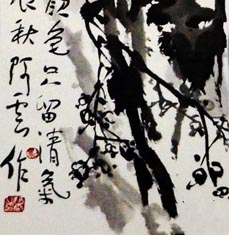 色只留清氣
秋阿雲作